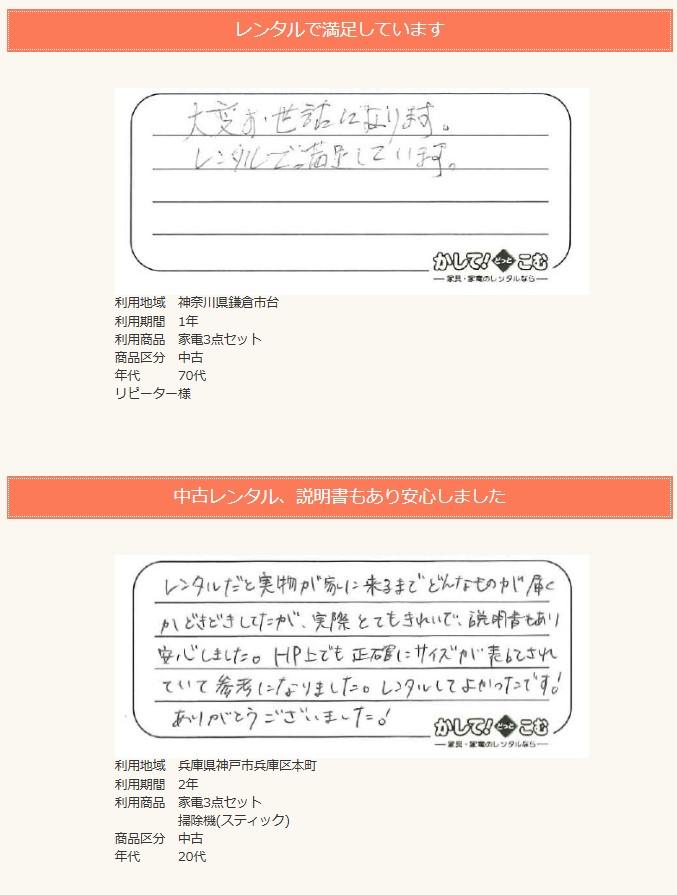 レンタルで満足しています
大変お世話になります。
レンタルで満足しています。
かして!どっとこむ
家具・家電のレンタルなら
利用地域 神奈川県鎌倉市台
利用期間 1年
利用商品 家電3点セット
商品区分 中古
年代 70代
リピーター様
中古レンタル、説明書もあり安心しました
レンタルだと実物が家に来るまでどんなものが届く
かどきどきしてたが、実際とてもきれいで、説明書もあり
安心しました。HP上でも正確にサイズが表もてされ
ていて参考になりました。レンタルしてよかったです!
ありがとうございました!
かして!どっとこむ
家具・家電のレンタルなら
利用地域 兵庫県神戸市兵庫区本町
利用期間 2年
利用商品 家電3点セット
掃除機(スティック)
商品区分 中古
年代 20代